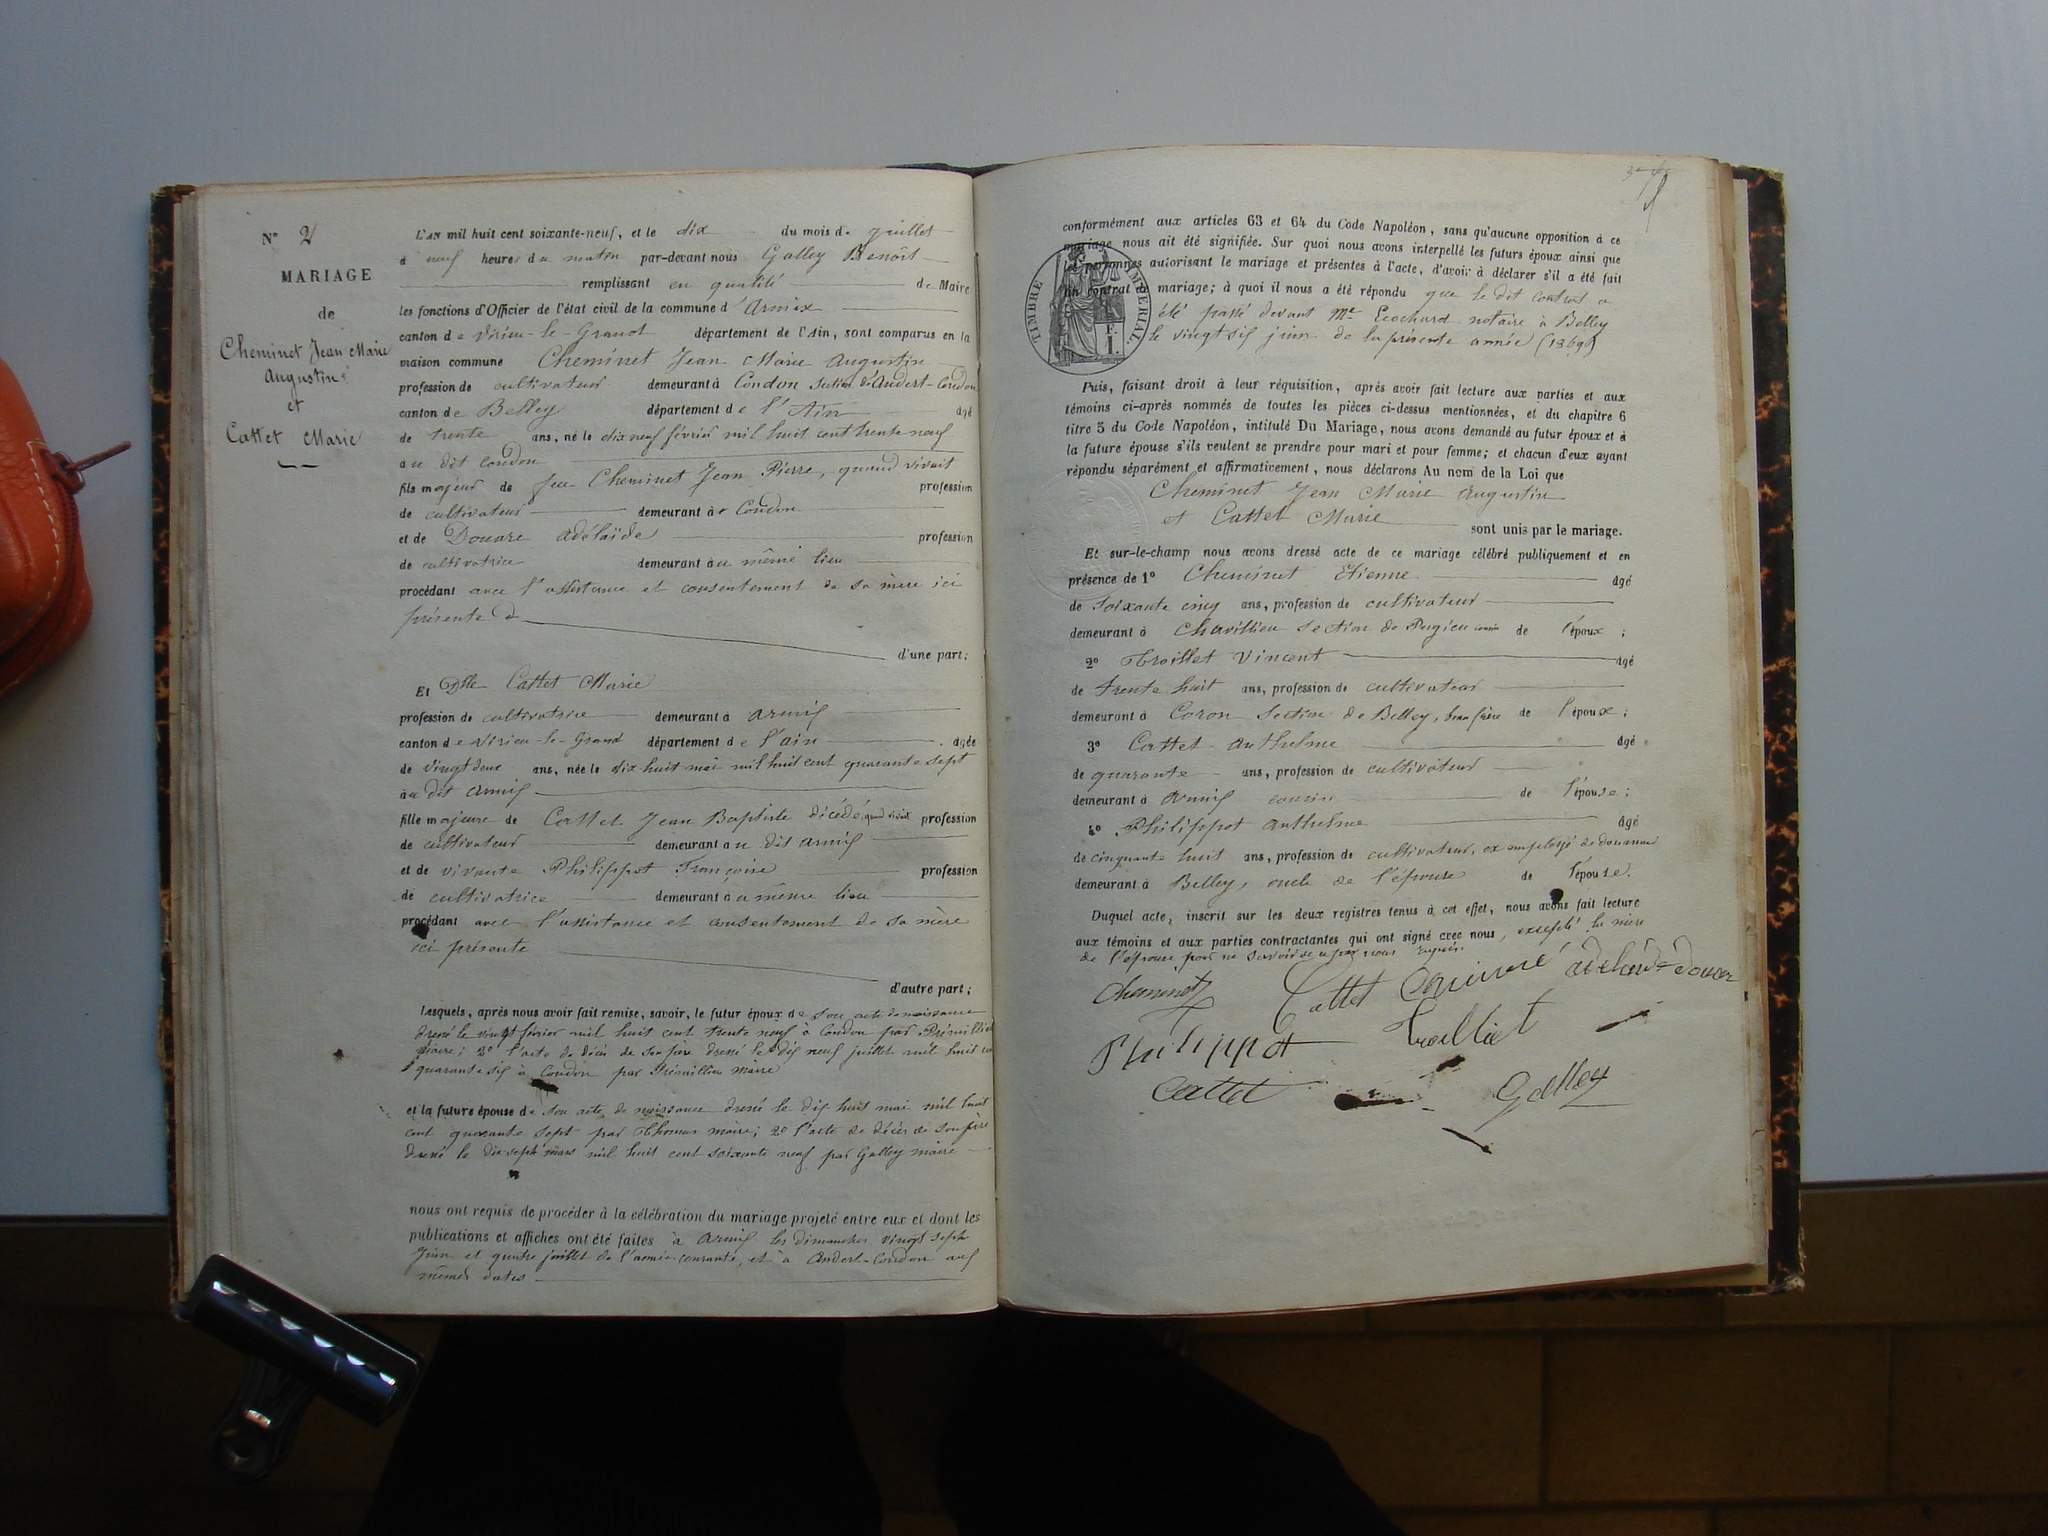 N° 2
MARIAGE
de
Cheminet Jean Marie
Augustin
et
Cattet Marie
L'AN mil huit cent soixante-neuf, et le dix du mois de juillet
à neuf heures du matin par-devant nous Galley Benoît
remplissant en qualité de Maire
les fonctions d'Officier de l'état civil de la commune d'Armix
canton de Virieu-le-Grand département de l'Ain, sont comparus en la
maison commune Cheminet Jean Marie Augustin
profession de cultivateur demeurant à Condon section d'Andert-Condon
canton de Belley département de l'Ain âgé
de trente ans, né le dix neuf février mil huit cent trente neuf
au dit Condon
fils majeur de feu Cheminet Jean Pierre, quand vivait profession
de cultivateur demeurant à Condon
et de Douare Adélaïde profession
de cultivatrice demeurant au même lieu
procédant avec l'assistance et consentement de sa mère ici
présente
d'une part;
Et Dlle Cattet Marie
profession de cultivatrice demeurant à Armix
canton de Virieu-le-Grand département de l'ain âgée
de vingt deux ans, née le dix huit mai mil huit cent quarante sept
au dit Armix
fille majeure de Cattet Jean Baptiste décédé, quand vivait profession
de cultivateur demeurant au dit Armix
et de vivante Philippot Françoise profession
de cultivatrice demeurant au même lieu
procédant avec l'assistance et consentement de sa mère
ici présente
d'autre part;
Lesquels, après nous avoir fait remise, savoir, le futur époux de son acte de naissance
dressé le vingt février mil huit cent trente neuf à Condon par Prémillieu
maire; 2° l'acte de décès de son père dressé le dix neuf juillet mil huit cent
quarante six à Condon par Prémillieu maire
et la future épouse de son acte de naissance dressé le dix huit mai mil huit
cent quarante sept par Thomas maire; 2° l'acte de décès de son père
dressé le dix sept mars mil huit cent soixante neuf par Galley maire
nous ont requis de procéder à la célébration du mariage projeté entre eux et dont les
publications et affiches ont été faites à Armix les dimanches vingt sept
Juin et quatre juillet de l'année courante, et à Andert-Condon aux
mêmes dates
conformément aux articles 63 et 64 du Code Napoléon, sans qu'aucune opposition à ce
mariage nous ait été signifiée. Sur quoi nous avons interpellé les futurs époux ainsi que
les personnes autorisant le mariage et présentes à l'acte, d'avoir à déclarer s'il a été fait
un contrat de mariage; à quoi il nous a été répondu que le dit contrat a
été passé devant Me Ecochard notaire à Belley
le vingt six juin de la présente année (1869)
TIMBRE IMPÉRIAL
Puis, faisant droit à leur réquisition, après avoir fait lecture aux parties et aux
témoins ci-après nommés de toutes les pièces ci-dessus mentionnées, et du chapitre 6
titre 5 du Code Napoléon, intitulé Du Mariage, nous avons demandé au futur époux et à
la future épouse s'ils veulent se prendre pour mari et pour femme; et chacun d'eux ayant
répondu séparément et affirmativement, nous déclarons Au nom de la Loi que
Cheminet Jean Marie Augustin
et Cattet Marie sont unis par le mariage.
Et sur-le-champ nous avons dressé acte de ce mariage célébré publiquement et en
présence de 1° Cheminet Etienne âgé
de soixante cinq ans, profession de cultivateur
demeurant à Chavillieu section de Pugieu cousin de l'époux;
2° Trolliet Vincent âgé
de trente huit ans, profession de cultivateur
demeurant à Coron section de Belley, beau frère de l'époux;
3° Cattet Anthelme âgé
de quarante ans, profession de cultivateur
demeurant à Armix cousin de l'épouse;
4° Philippot Anthelme âgé
de cinquante huit ans, profession de cultivateur, ex employé de douanes
demeurant à Belley, oncle de l'épouse de l'épouse.
Duquel acte, inscrit sur les deux registres tenus à cet effet, nous avons fait lecture
aux témoins et aux parties contractantes qui ont signé avec nous, excepté la mère
de l'épouse pour ne savoir de ce par nous requise
Cheminet Cattet
Philippot Trolliet
Cattet Galley